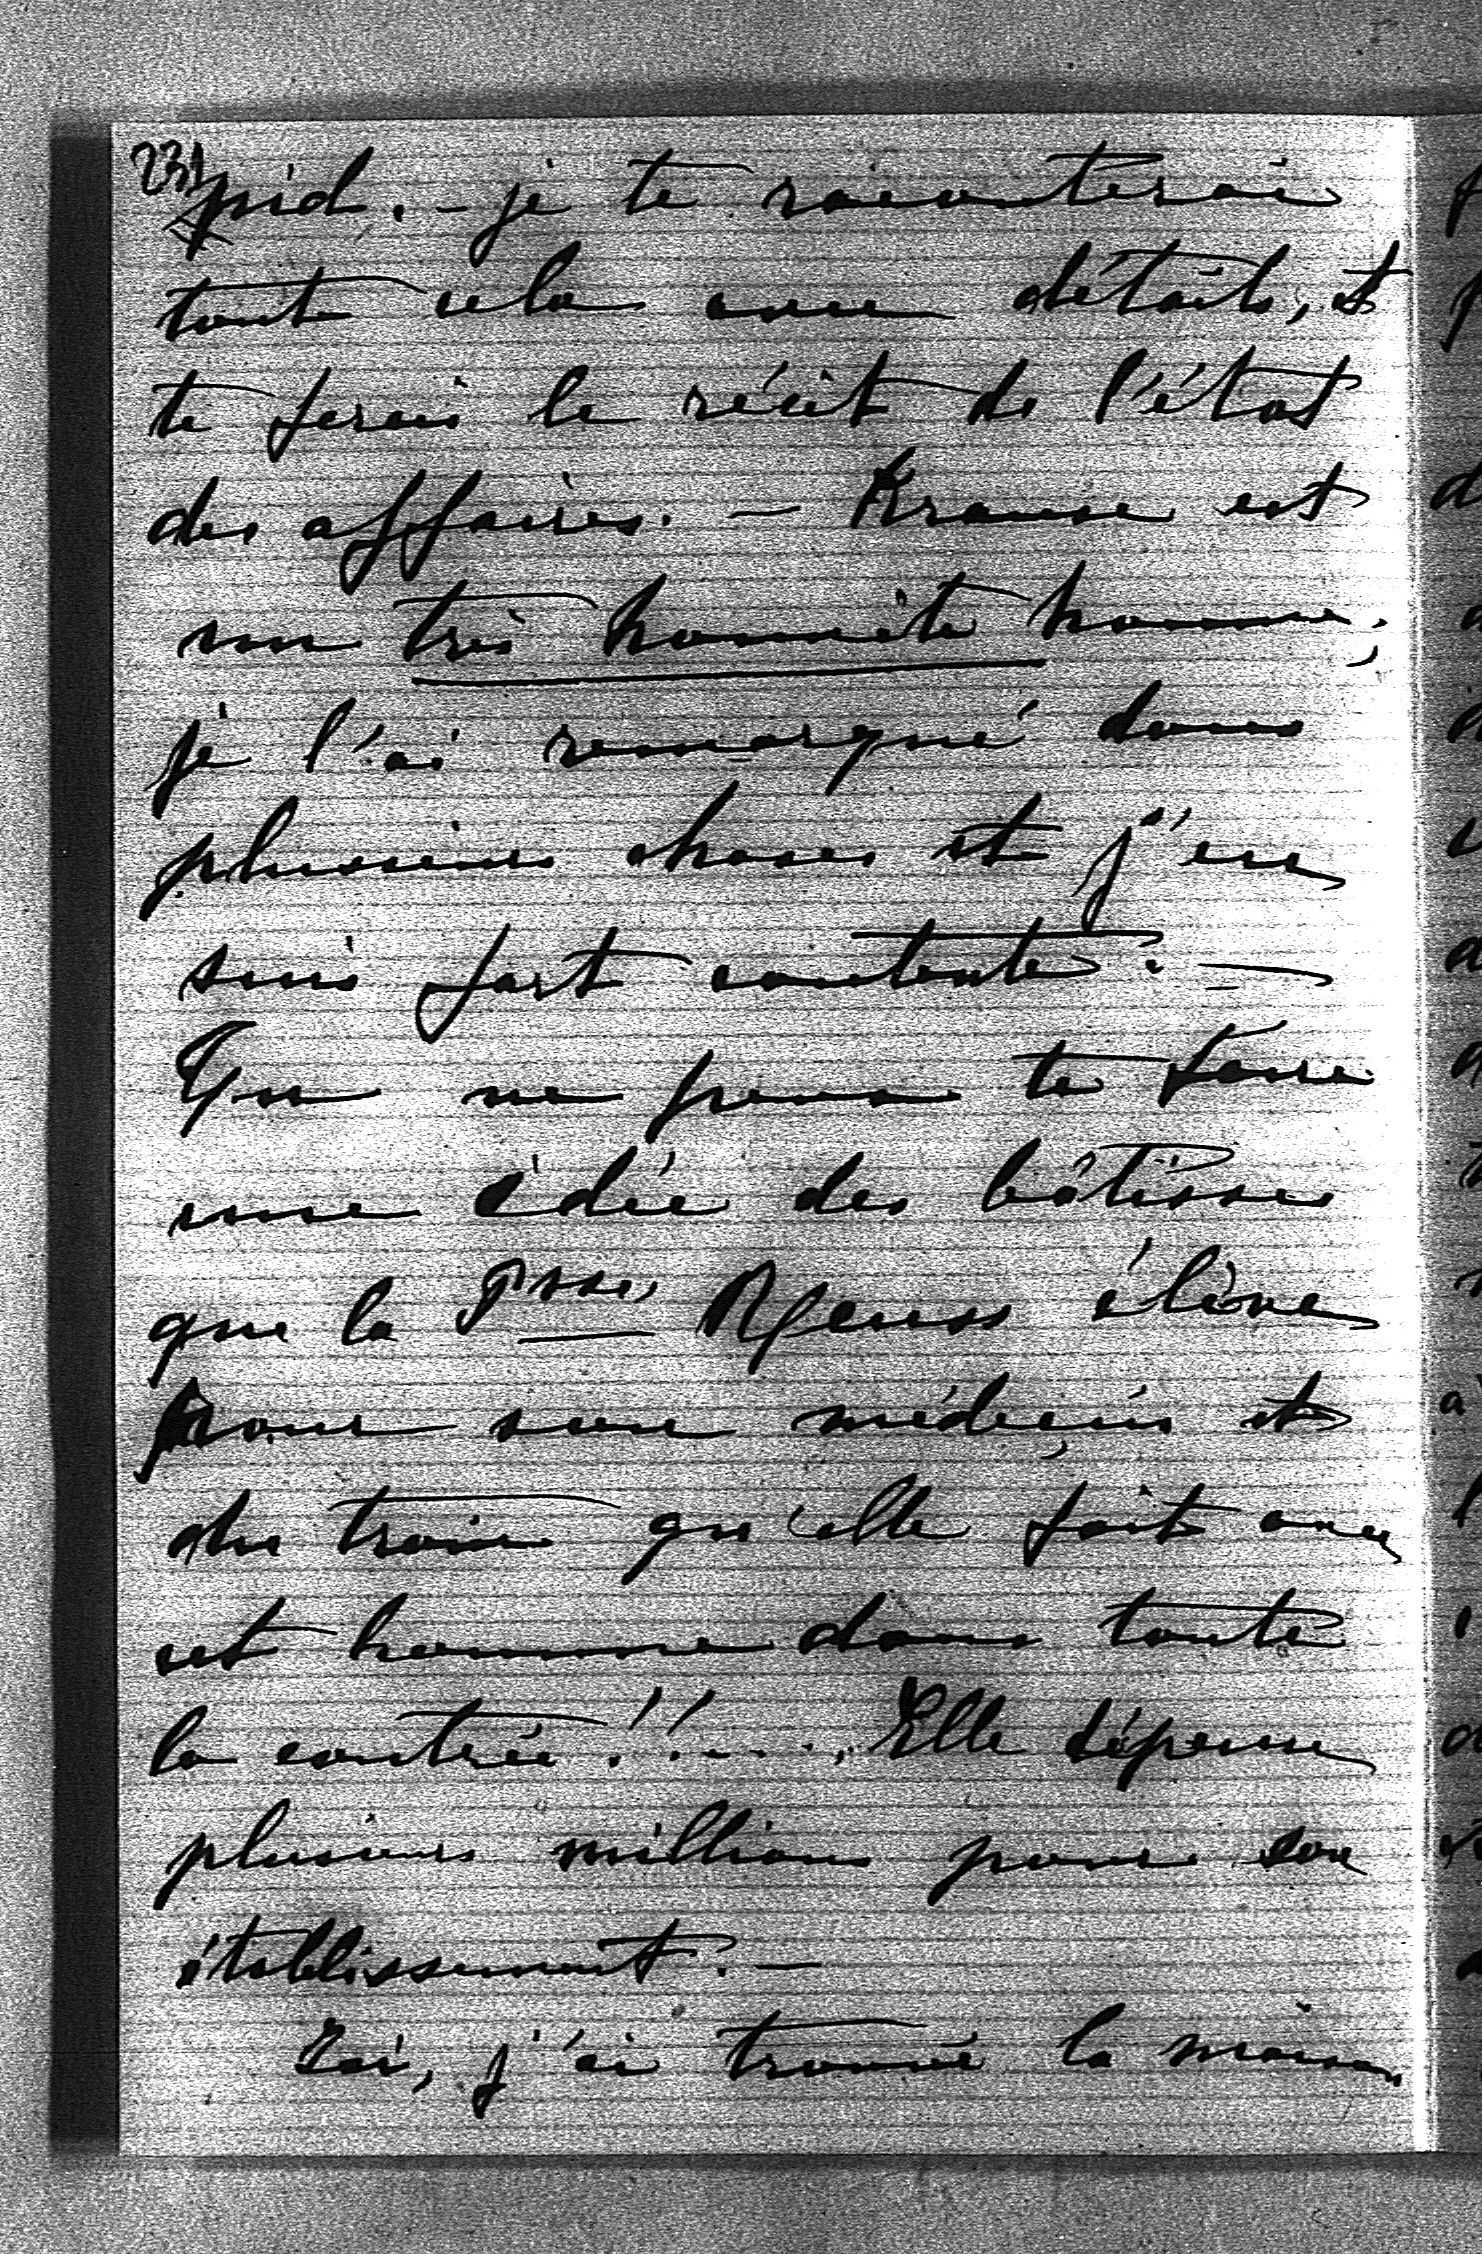 231
pied. — je te raconterai
tout cela avec détails, et
te ferai le récit de l'état
des affaires. — Krause est
un très honnête homme;
je l'ai remarqué dans
plusieurs choses et j'en
suis fort contente. —
Tu ne peux te faire
une idée des bâtisses
que la Psse, élève
pour son médecin et
du train qu'elle fait avec
cet homme dans toute
la contrée!!.... Elle dépense
plusieurs millions pour son
établissement. —
Ici, j'ai trouvé la maison